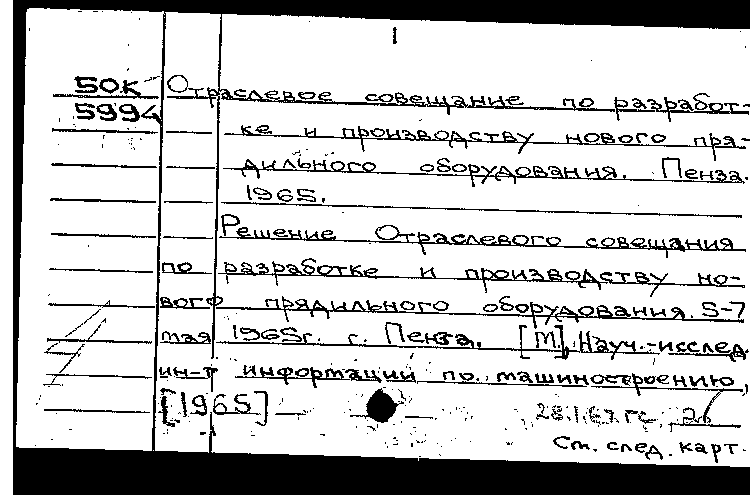 1
50К Отраслевое совещание по разработ-
5994
ке и производству нового пря-
дильного оборудования. Пенза.
1965.
Решение Отраслевого совещания
по разработке и производству но-
вого прядильного оборудования. 5-7
мая 1965г. г. Пенза. [М], Науч.-исслед.
ин-т информации по машиностроению,
[1965]
См. след. карт.